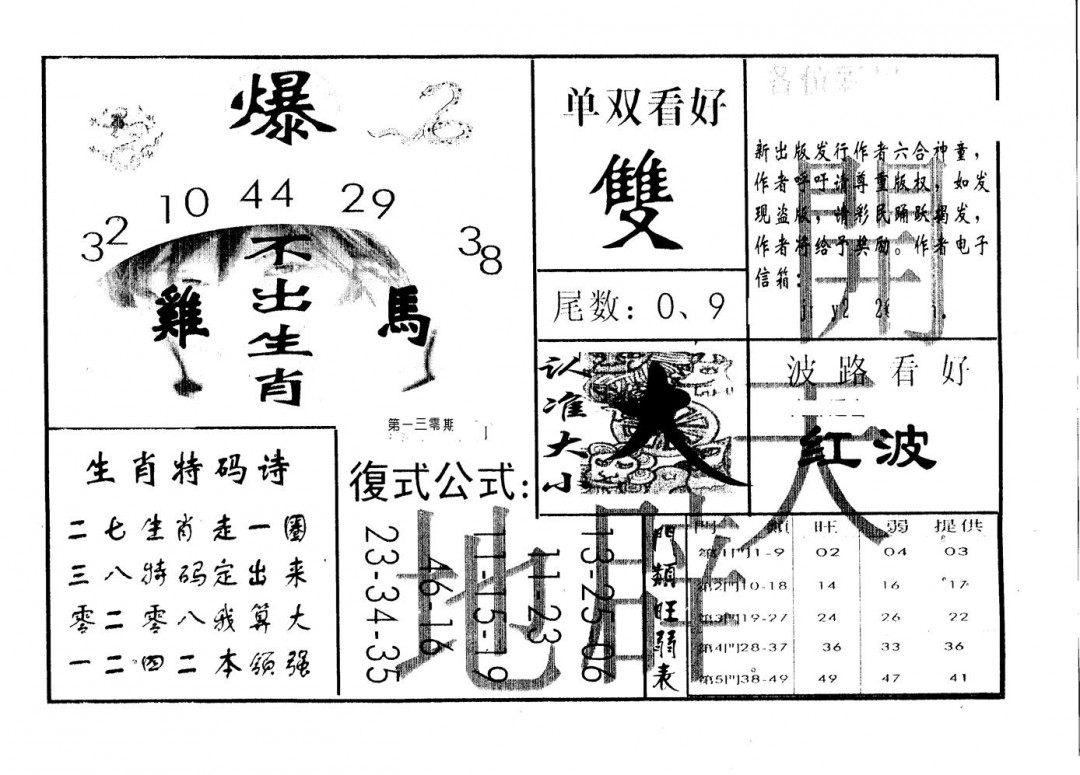 爆
32 10 44 29 38
不出生肖
雞
馬
第一三零期
单双看好
雙
尾数：0、9
新出版发行作者六合神童，
作者呼吁请尊重版权，如发
现盗版，请彩民踊跃揭发，
作者将给予奖励。作者电子
信箱：
认准大小
大
波路看好
红波
生肖特码诗
二七生肖走一圈
三八特码定出来
零二零八我算大
一二四二本领强
復式公式：
23-34-35
46-16
11-15-19
11-23
13-25-06
門類旺弱表
門類 旺 弱 提供
第1門1-9 02 04 03
第2門10-18 14 16 17
第3門19-27 24 26 22
第4門28-37 36 33 36
第5門38-49 49 47 41
天
地